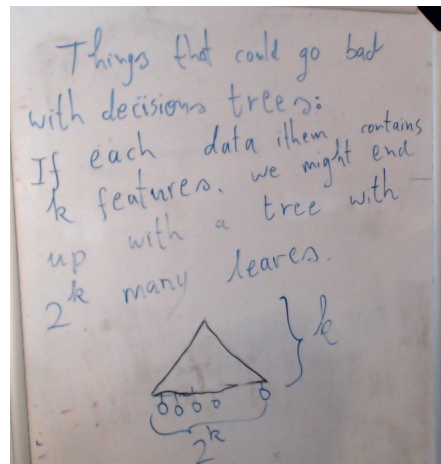 Things that could go bad
with decisions trees:
If each data ithem contains
k features, we might end
up with a tree with
2^k many leaves.
k
2^k